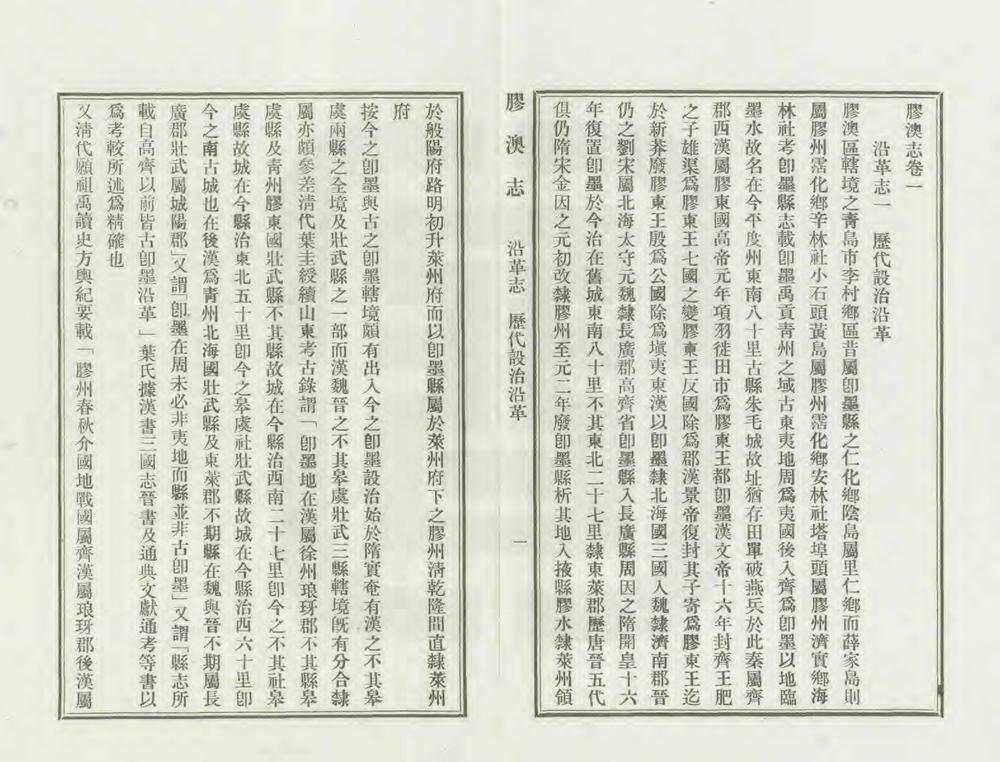 膠澳志卷一
沿革志一　歷代設治沿革
膠澳區轄境之靑島市李村鄕區昔屬卽墨縣之仁化鄕陰島屬里仁鄕而薛家島則
屬膠州霑化鄕辛林社小石頭黃島屬膠州霑化鄕安林社塔埠頭屬膠州濟實鄕海
林社考卽墨縣志載卽墨禹貢靑州之域古東夷地周爲夷國後入齊爲卽墨以地臨
墨水故名在今平度州東南八十里古縣朱毛城故址猶存田單破燕兵於此秦屬齊
郡西漢屬膠東國高帝元年項羽徙田市爲膠東王都卽墨漢文帝十六年封齊王肥
之子雄渠爲膠東王七國之變膠東王反國除爲郡漢景帝復封其子寄爲膠東王迄
於新莽廢膠東王殷爲公國除爲塡夷東漢以卽墨隸北海國三國入魏隸濟南郡晉
仍之劉宋屬北海太守元魏隸長廣郡高齊省卽墨縣入長廣縣周因之隋開皇十六
年復置卽墨於今治在舊城東南八十里不其東北二十七里隸東萊郡歷唐晉五代
俱仍隋宋金因之元初改隸膠州至元二年廢卽墨縣析其地入掖縣膠水隸萊州領
膠澳志　沿革志　歷代設治沿革　一
於般陽府路明初升萊州府而以卽墨縣屬於萊州府下之膠州淸乾隆間直隸萊州
府
按今之卽墨與古之卽墨轄境頗有出入今之卽墨設治始於隋實奄有漢之不其皋
虞兩縣之全境及壯武縣之一部而漢魏晉之不其皋虞壯武三縣轄境旣有分合隸
屬亦頗參差淸代葉圭綬續山東考古錄謂「卽墨地在漢屬徐州琅玡郡不其縣皋
虞縣及靑州膠東國壯武縣不其縣故城在今縣治西南二十七里卽今之不其社皋
虞縣故城在今縣治東北五十里卽今之皋虞社壯武縣故城在今縣治西六十里卽
今之南古城也在後漢爲靑州北海國壯武縣及東萊郡不期縣在魏與晉不期屬長
廣郡壯武屬城陽郡」又謂「卽墨在周未必非夷地而縣並非古卽墨」又謂「縣志所
載自高齊以前皆古卽墨沿革」葉氏據漢書三國志晉書及通典文獻通考等書以
爲考較所述爲精確也
又淸代顧祖禹讀史方輿紀要載「膠州春秋介國地戰國屬齊漢屬琅玡郡後漢屬